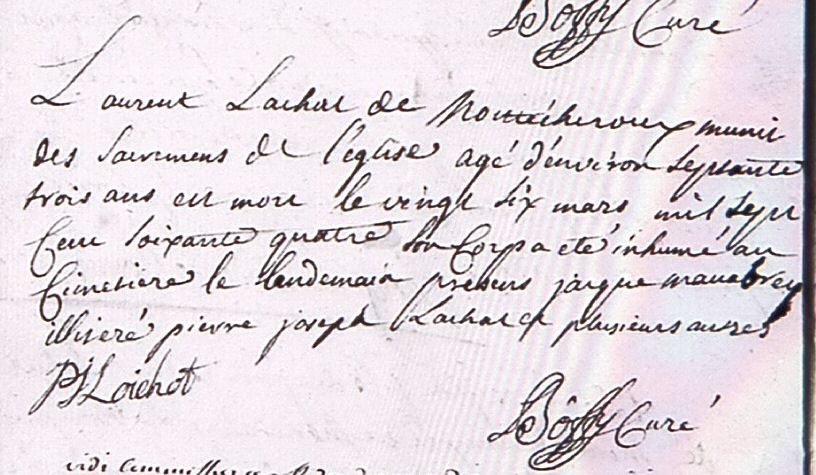 Boffy Curé
Laurent Lachat de Montécheroux munit
des sacremens de l'église agé d'énviron septante
trois ans est mort le vingt six mars mil sept
cent soixante quatre son corp a eté inhumé au
cimetiere le lendemain présens jacque mauabrey
illiteré pierre joseph Lachat et plusieurs autres
PJ Loichot
Boffy Curé
vidi